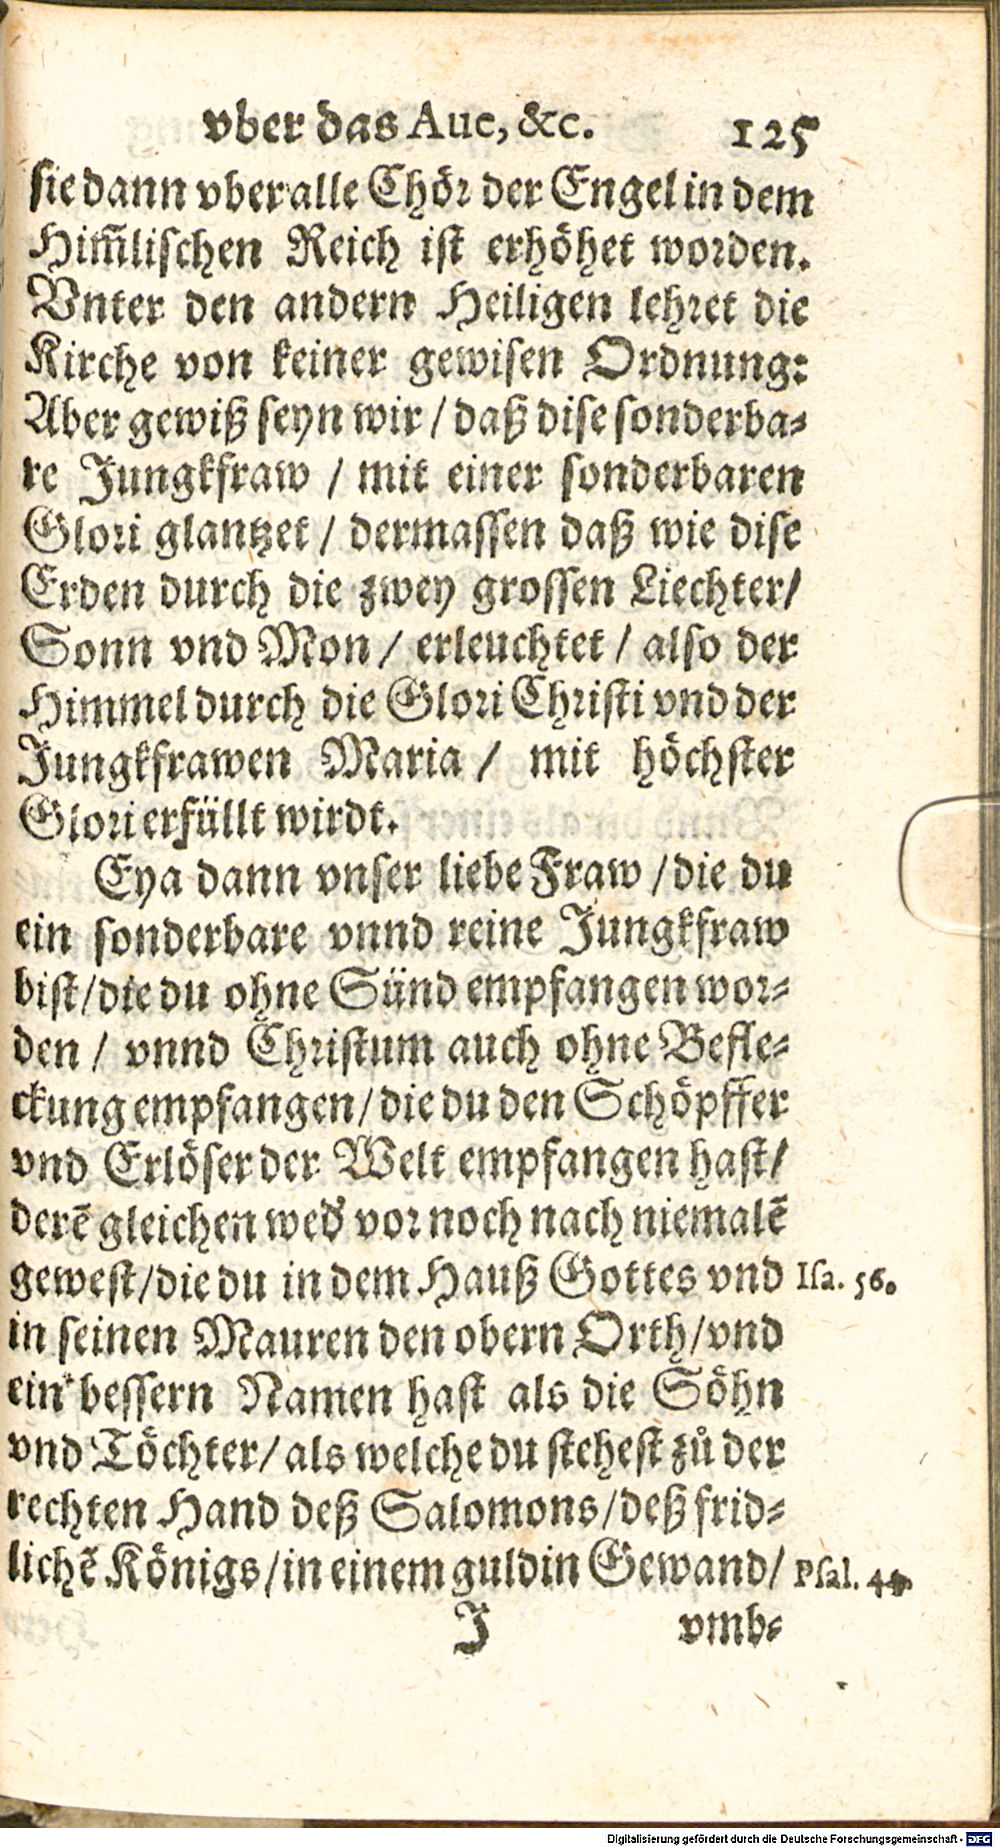 vber das Aue, &c. 125
sie dann vber alle Chör der Engel in dem
Him̃lischen Reich ist erhöhet worden.
Vnter den andern Heiligen lehret die
Kirche von keiner gewisen Ordnung:
Aber gewiß seyn wir / daß dise sonderba-
re Jungkfraw / mit einer sonderbaren
Glori glantzet / dermassen daß wie dise
Erden durch die zwey grossen Liechter/
Sonn vnd Mon / erleuchtet / also der
Himmel durch die Glori Christi vnd der
Jungkfrawen Maria / mit höchster
Glori erfüllt wirdt.
Eya dann vnser liebe Fraw / die du
ein sonderbare vnnd reine Jungkfraw
bist/die du ohne Sünd empfangen wor-
den / vnnd Christum auch ohne Befle-
ckung empfangen/die du den Schöpffer
vnd Erlöser der Welt empfangen hast/
derẽ gleichen wed' vor noch nach niemalẽ
gewest/die du in dem Hauß Gottes vnd Isa. 56.
in seinen Mauren den obern Orth/vnd
ein bessern Namen hast als die Söhn
vnd Töchter/als welche du stehest zů der
rechten Hand deß Salomons/deß frid-
lichẽ Königs/in einem guldin Gewand/ Psal. 44.
J vmb-
Digitalisierung gefördert durch die Deutsche Forschungsgemeinschaft - DFG